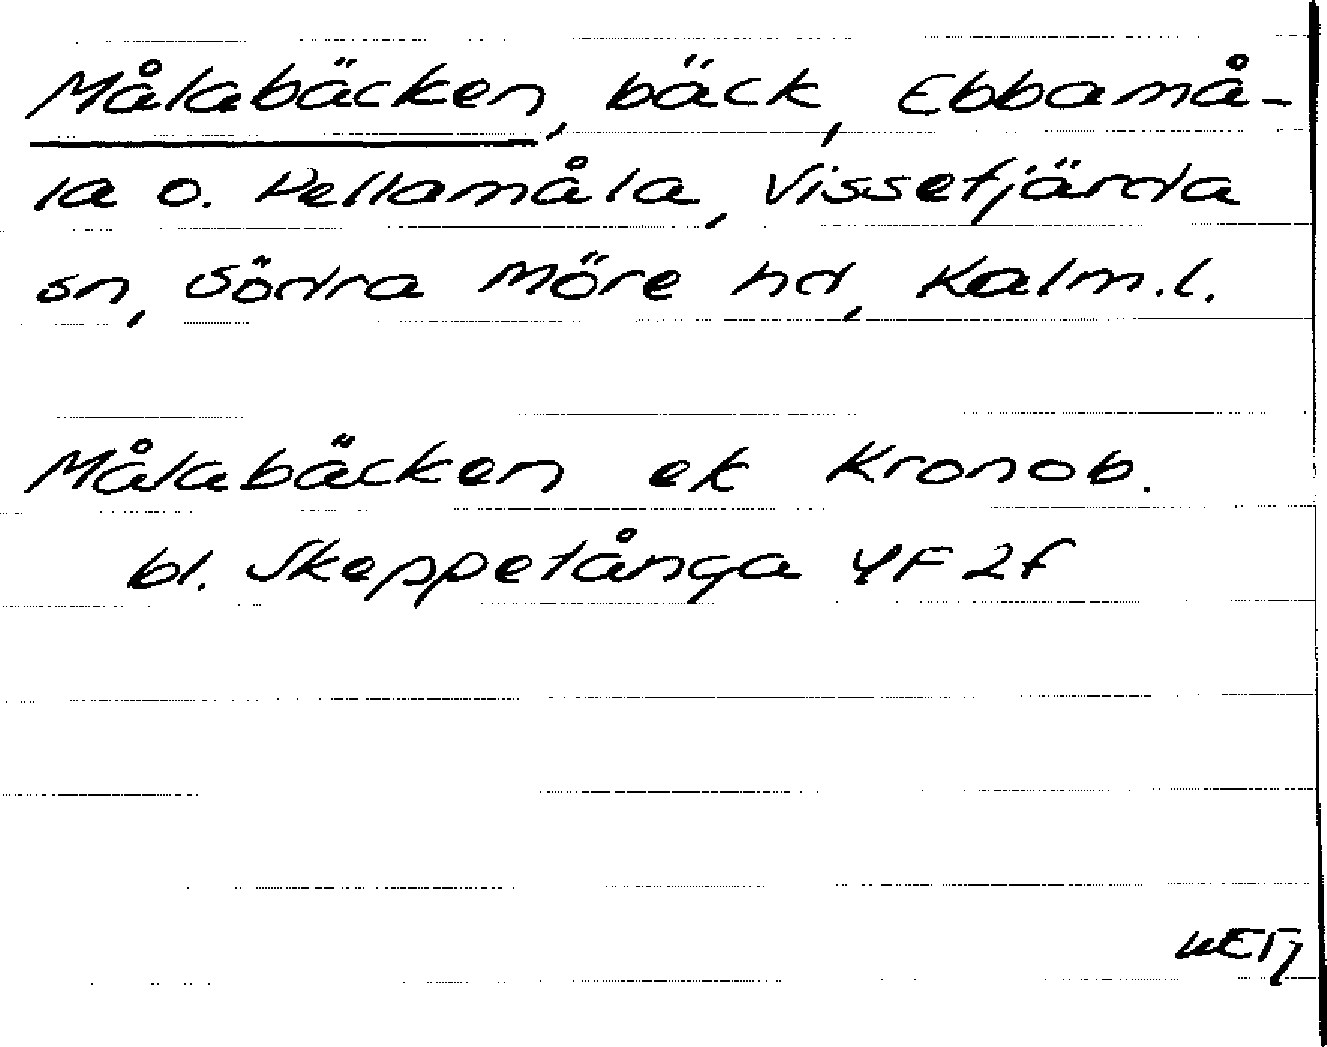 Målabäcken, bäck, Ebbamå-
la o. Pellamåla, Vissefjärda
sn, Södra Möre hd, Kalm.l.
Målabäcken ek Kronob.
bl. Skeppetånga 4F2f